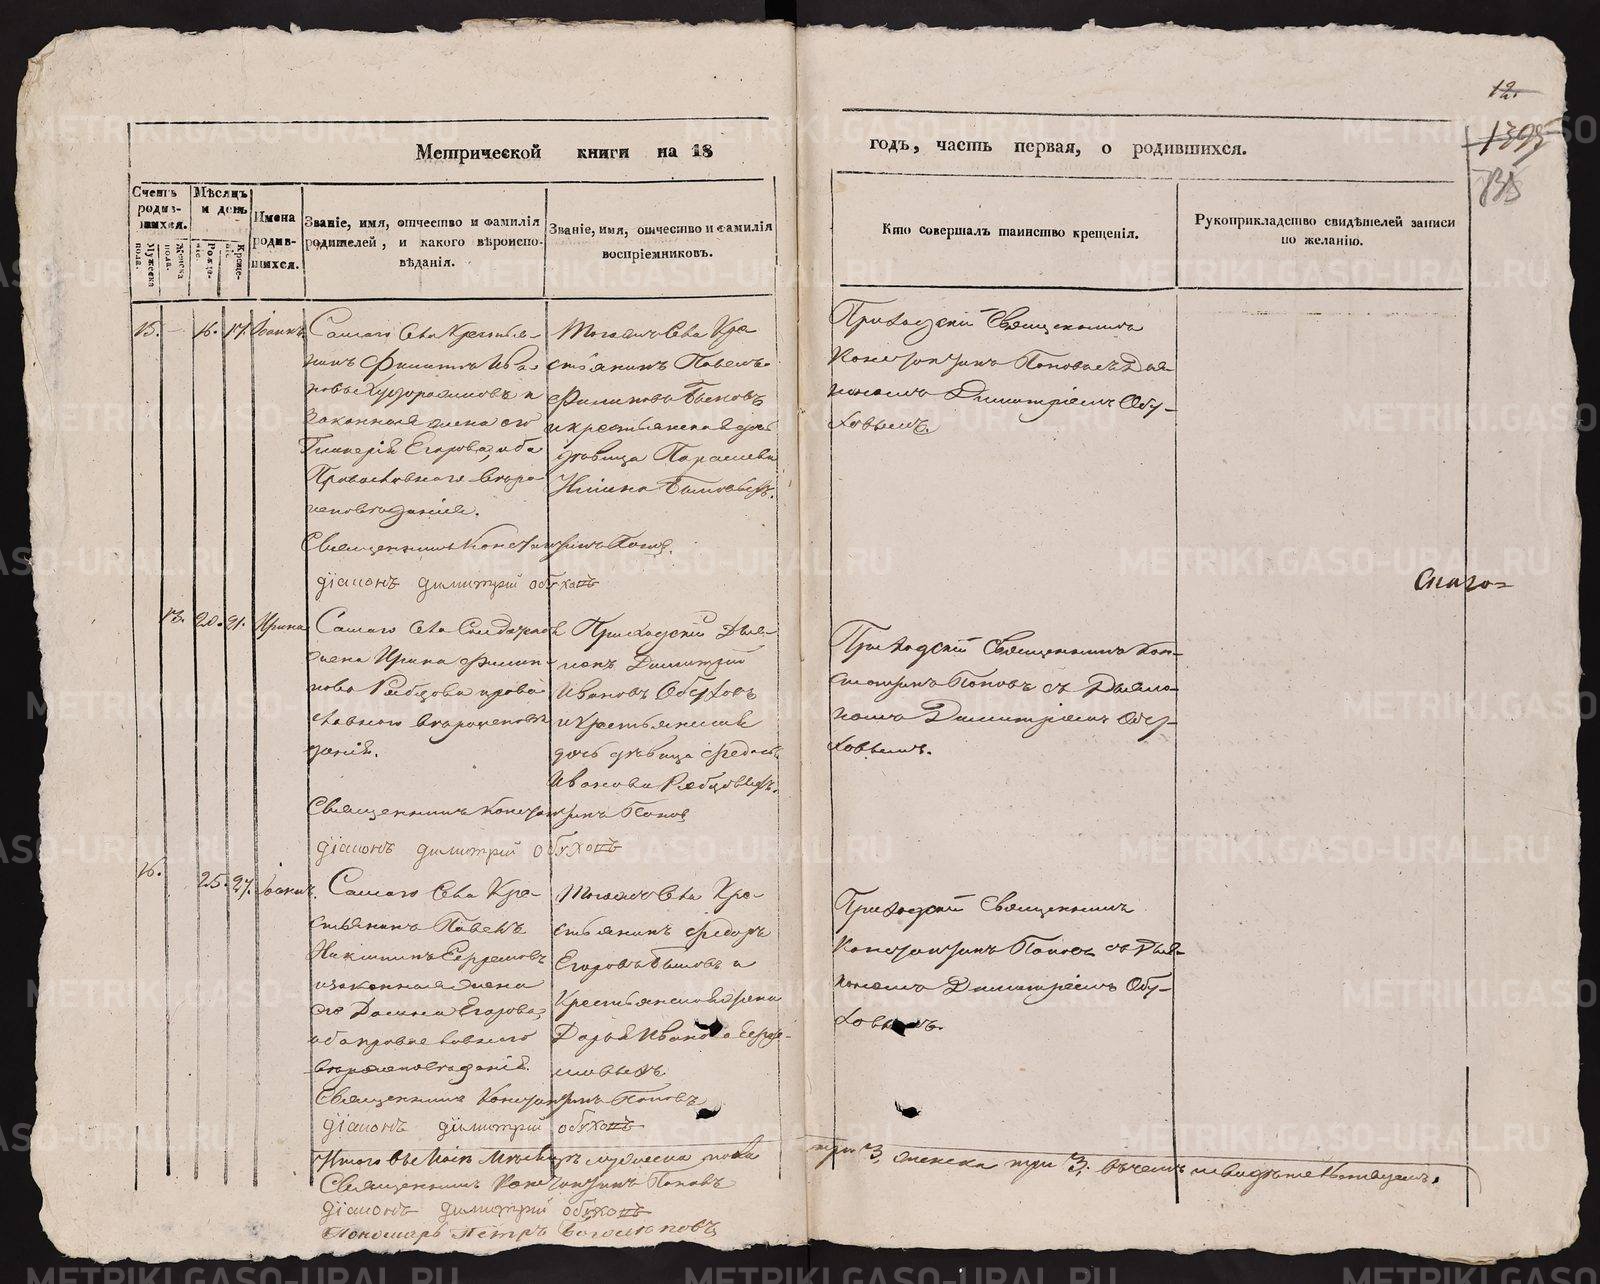 12.
1395
135
Метрической книги на 18
годъ, часть первая, о родившихся.
Счетъ родившихся.
Мужеска пола.
Женска пола.
Мѣсяцъ и день
Рожденіе.
Крещеніе.
Имена родившихся.
Званіе, имя, отчество и фамилія родителей, и какого вѣроисповѣданія.
Званіе, имя, отчество и фамилія воспріемниковъ.
Кто совершалъ таинство крещенія.
Рукоприкладство свидѣтелей записи по желанію.
15. — 16. 17. Іоаннъ
Самаго Села Крестья-
нинъ Филиппъ Ива-
новъ и
законная жена его
Гликерія Егорова, оба
Православнаго вѣро-
исповѣданія.
Тогожъ Села Кре
стьянинъ Павелъ
Филиповъ
и крестьянская дочь
дѣвица Парасковья
Приходскій Священникъ
Константинъ Поповъ съ Дья-
кономъ Димитріемъ Обу-
ховымъ.
Священникъ Константинъ Поповъ
діаконъ димитрій обуховъ
13. 20. 21. Ирина
Самаго Села Солдатская
жена Ирина Филип-
пова Рябцова право
славнаго вѣроисповѣ
данія.
Приходскій Дья-
конъ Димитрій
Ивановъ Обуховъ
и Крестьянская
дочь дѣвица Федосья
Иванова Рябцовыхъ.
Приходскій Священникъ Кон-
стантинъ Поповъ съ Дьяко-
номъ Димитріемъ Обу-
ховымъ.
Священникъ Константинъ Поповъ
діаконъ димитрій обуховъ
16. 25. 27. Іоаннъ.
Самаго Села Кре-
стьянинъ Павелъ
Никитинъ
и законная жена
его Егорова,
оба православнаго
вѣроисповѣданія.
Тогожъ Села Кре-
стьянинъ Федоръ
Егоровъ и
Крестьянская жена
Дарья Иванова
Приходскій Священникъ
Константинъ Поповъ съ Дья-
кономъ Димитріемъ Обу-
ховымъ.
Священникъ Константинъ Поповъ
діаконъ димитрій обуховъ
Итого въ Маѣ Мѣсяцѣ мужеска пола три 3, женска три 3; въ чемъ и свидѣтельствуемъ.
Священникъ Константинъ Поповъ
діаконъ димитрій обуховъ
Пономарь Петръ
METRIKI.GASO-URAL.RU